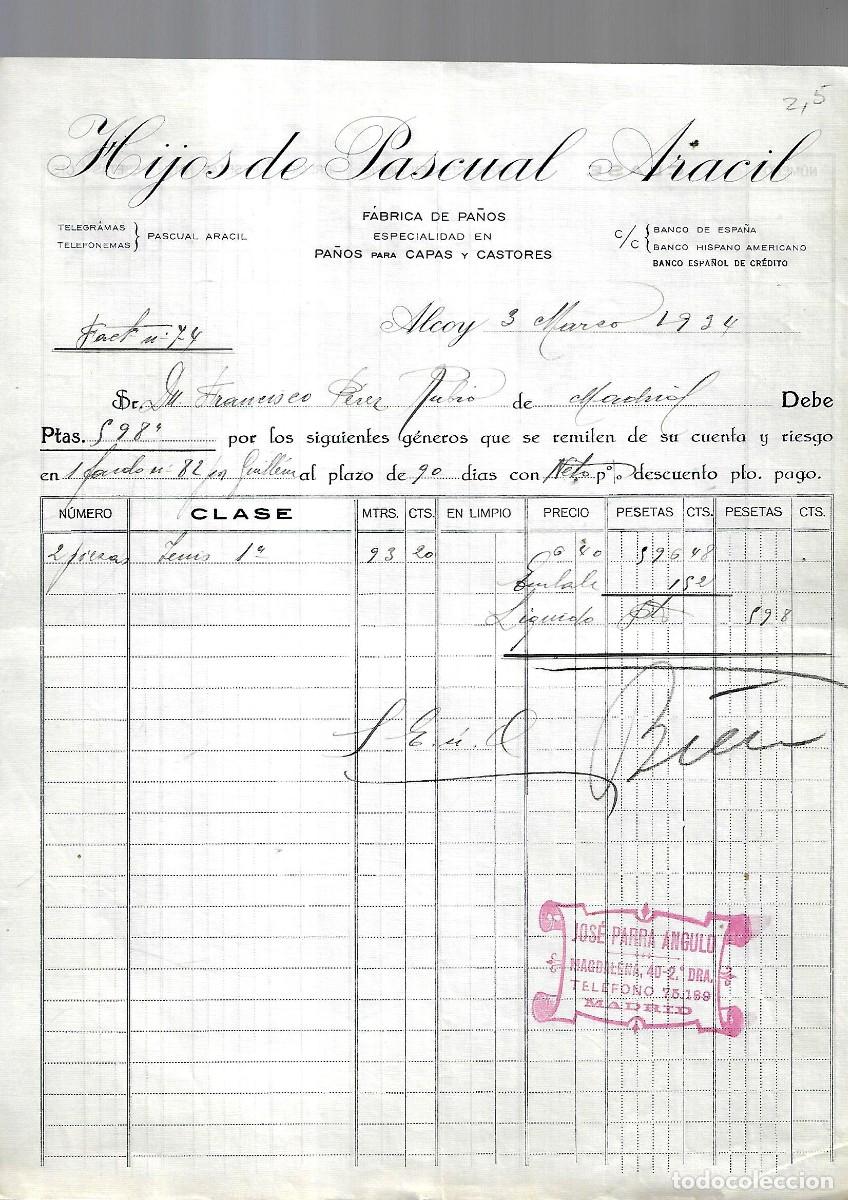 2,5
Hijos de Pascual Aracil
TELEGRAMAS
TELEFONEMAS
PASCUAL ARACIL
FÁBRICA DE PAÑOS
ESPECIALIDAD EN
PAÑOS PARA CAPAS Y CASTORES
C/C
BANCO DE ESPAÑA
BANCO HISPANO AMERICANO
BANCO ESPAÑOL DE CRÉDITO
Alcoy 3 Marzo 1934
Fact nº 74
Sr. Dn Francisco Pérez Rubio de Madrid Debe
Ptas. 598" por los siguientes géneros que se remiten de su cuenta y riesgo
en 1 fardo nº 82 por Guillem al plazo de 90 dias con Neto p% descuento pto. pago.
NÚMERO CLASE MTRS. CTS. EN LIMPIO PRECIO PESETAS CTS. PESETAS CTS.
2 piezas 1ª 93 20 6 40 596 48
Embale 1 52
Liquido Pts 598
S. E. ú. O
Bien
JOSÉ PARRA ANGULO
MAGDALENA, 40-2.º DRA.
TELÉFONO 75.189
MADRID
todocoleccion